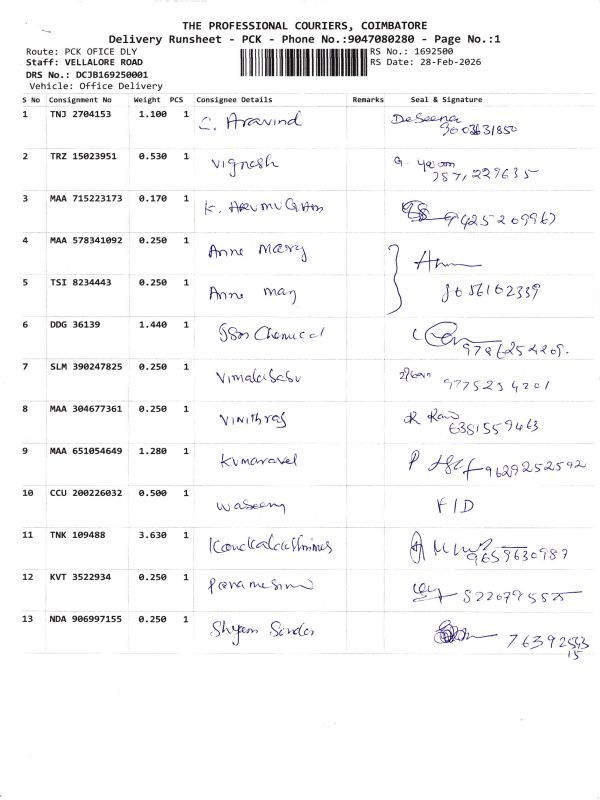 THE PROFESSIONAL COURIERS, COIMBATORE
Delivery Runsheet - PCK - Phone No.:9047080280 - Page No.:1
Route: PCK OFICE DLY RS No.: 1692500
Staff: VELLALORE ROAD RS Date: 28-Feb-2026
DRS No.: DCJB169250001
Vehicle: Office Delivery
S No Consignment No Weight PCS Consignee Details Remarks Seal & Signature
1 TNJ 2704153 1.100 1 C. Aravind
2 TRZ 15023951 0.530 1 Vignesh
3 MAA 715223173 0.170 1 K. ARUMUGAM
4 MAA 578341092 0.250 1 Anne Mary
5 TSI 8234443 0.250 1 Anne Mary 8056162339
6 DDG 36139 1.440 1 Chemical
7 SLM 390247825 0.250 1 Vimalababu 9775234201
8 MAA 304677361 0.250 1 Vinithraj 6381559463
9 MAA 651054649 1.280 1 Kumaravel 9629252592
10 CCU 200226032 0.500 1 Waseem F/D
11 TNK 109488 3.630 1 9659630987
12 KVT 3522934 0.250 1
13 NDA 906997155 0.250 1 Shyam Sundar